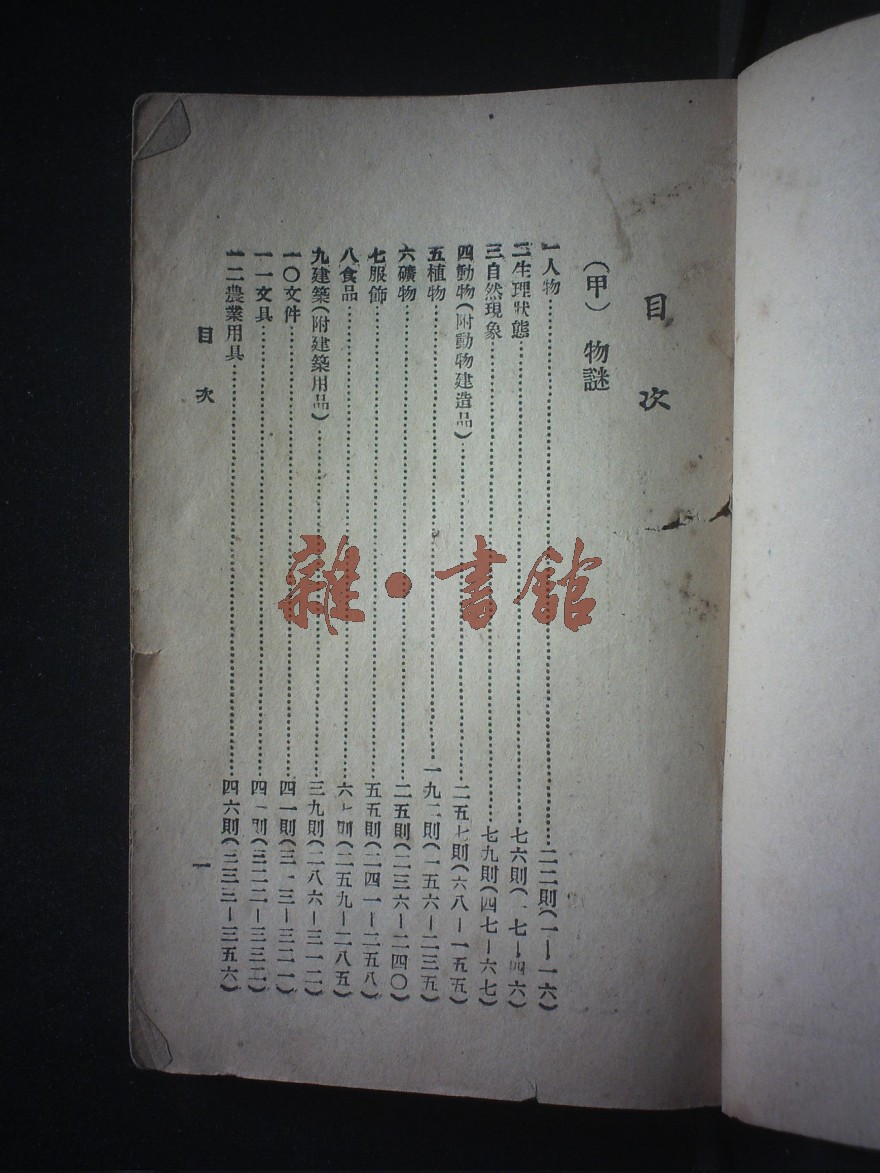 目次
（甲）物謎
一人物……二二則（一－一六）
二生理狀態……七六則（一七－四六）
三自然現象……七九則（四七－六七）
四動物（附動物建造品）……二五七則（六八－一五五）
五植物……一九二則（一五六－二三五）
六礦物……二五則（二三六－二四〇）
七服飾……五五則（二四一－二五八）
八食品……六七則（二五九－二八五）
九建築（附建築用品）……三九則（二八六－三一二）
一〇文件……四一則（三一三－三二一）
一一文具……四一則（三二二－三三二）
一二農業用具……四六則（三三三－三五六）
目次
一
雜·書館